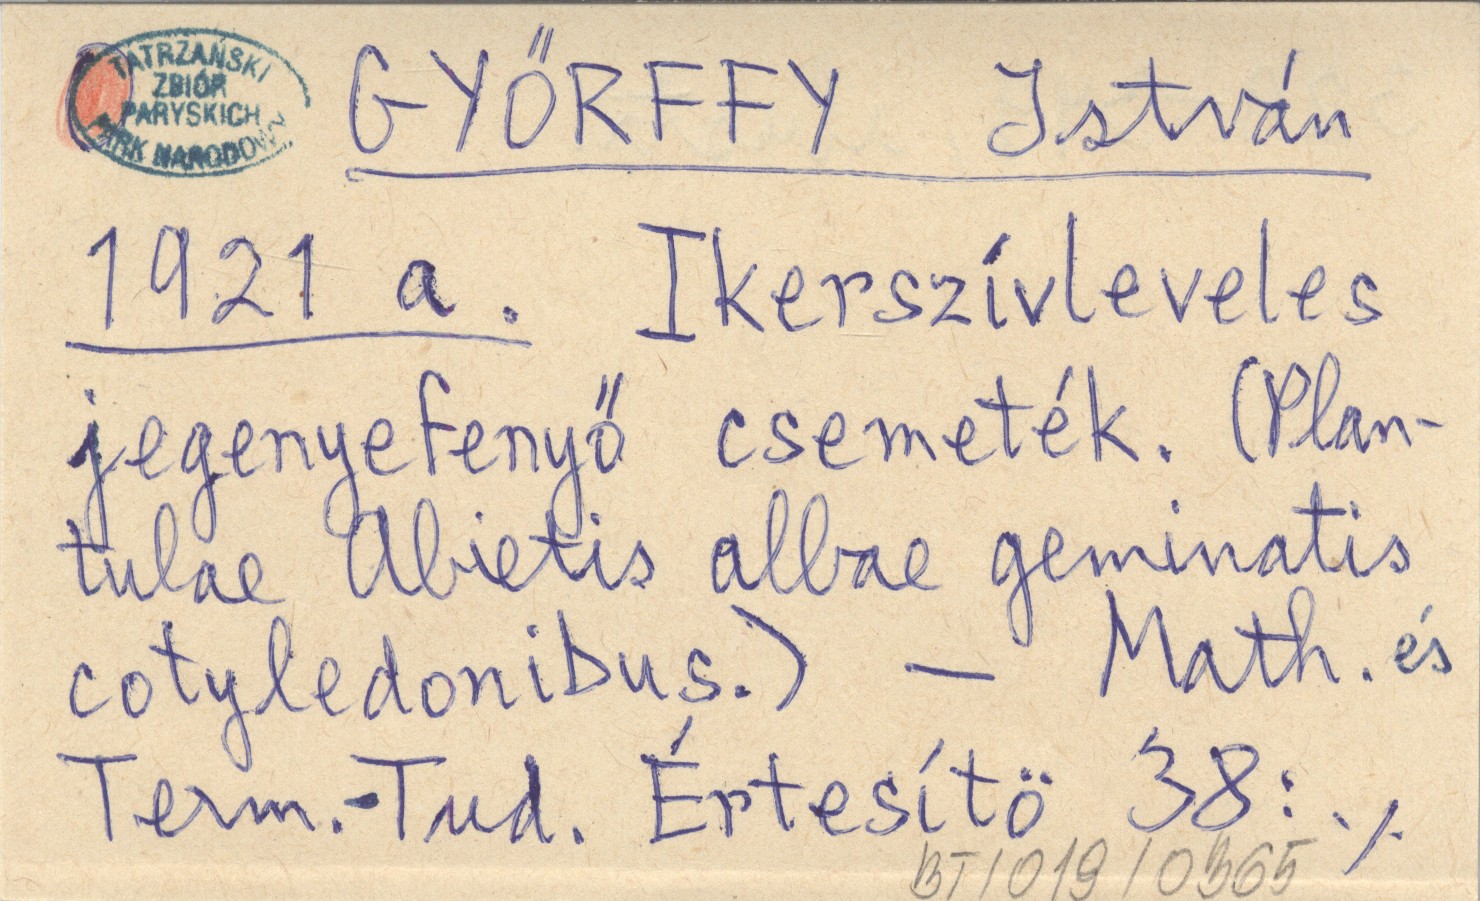 TATRZAŃSKI
ZBIÓR
PARYSKICH
PARK NARODOWY
GYŐRFFY István
1921 a. Ikerszívleveles
jegenyefenyő csemeték. (Plan-
tulae Abietis albae geminatis
cotyledonibus.) — Math. és
Term.-Tud. Értesítö 38: ./.
BT/019/0365